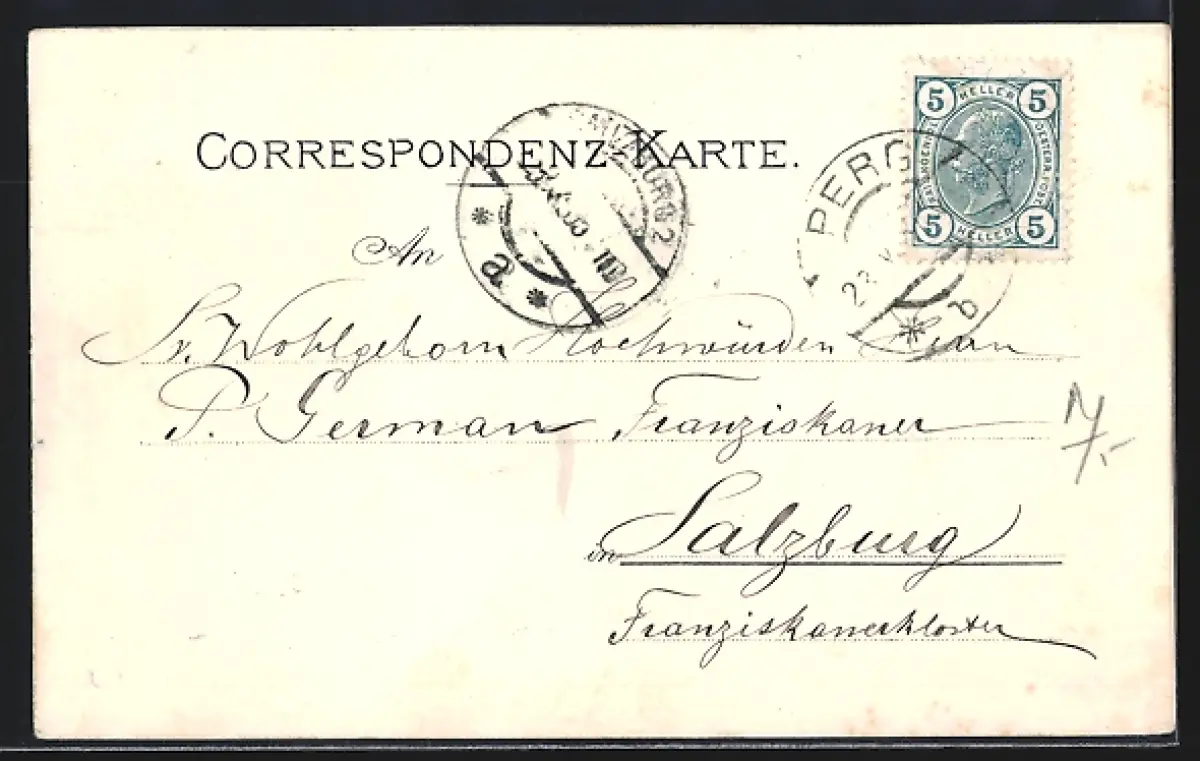 5 HELLER 5
CORRESPONDENZ-KARTE.
SALZBURG 2
PERG
5 HELLER 5
An
a
b
Sr. Wohlgeborn Hochwürden Herrn
P. German Franziskaner
7.-
in Salzburg
Franziskanerkloster